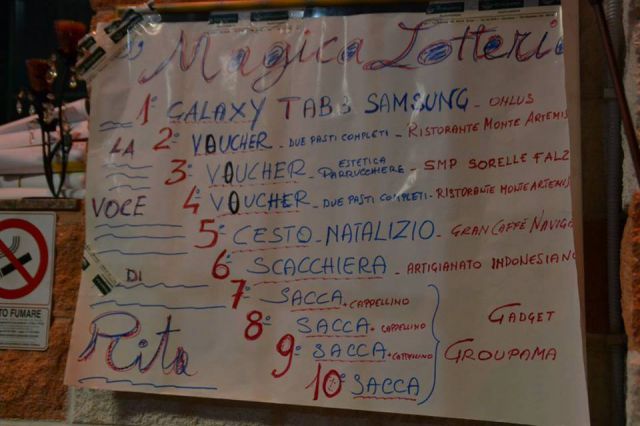 Magica Lotteri
1° GALAXY TAB 3 SAMSUNG - OHLUS
LA
2° VOUCHER - DUE PASTI COMPLETI - RISTORANTE MONTE ARTEMIS
3° VOUCHER - ESTETICA PARRUCCHIERE - SMP SORELLE FALZ
VOCE
4° VOUCHER - DUE PASTI COMPLETI - RISTORANTE MONTE ARTEMIS
5° CESTO - NATALIZIO - GRAN CAFFÈ NAVIG
6° SCACCHIERA - ARTIGIANATO INDONESIANO
DI
7° SACCA + CAPPELLINO
8° SACCA + CAPPELLINO
GADGET
Rita
9° SACCA + CAPPELLINO
GROUPAMA
10° SACCA
TO FUMARE